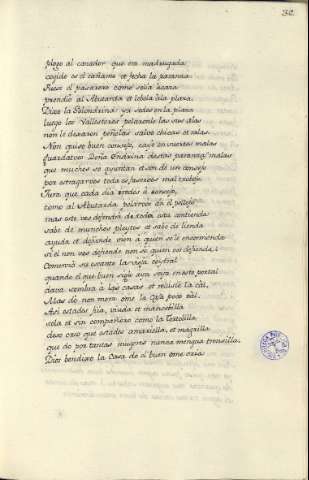 32
luego al cazador que era madrugada
cogido es el cañamo et fecha la parança
fuese el paxarero como solia a caza
prendió al Abutarda et lebola á la plaza.
Dixo la Golondrina ya sodes en la plaza
luego los Vallesteros pelaronle las sus alas
non le dexaron peñolas salvo chicas et ralas
Non quiso buen consejo, cayó en fuertes malas
guardatvos Doña Endrina destas paranzas malas
que muchos se ayuntan et son de un consejo
por astragarvos todo es, faservos mal trebejo
Jura que cada dia vredes á concejo,
como al Abutarda pelarvos án el pellejo
mas este vos defendrá de toda esta contienda
sabe de munchos pleytos et sabe de lienda
ayuda et defiende bien á quien se le encomienda
si él non vos defiende non sé quien vos defienda.
Comenzó su escanto la vieja coytral
quando el que buen siglo aya seia en este portal
dava sombra á las casas et reluzie la cál,
Mas do non mora ome la casa poco val.
Asi estades fija, viuda et mancebilla
sola et sin compañero como la Tortolilla
deso creo que estades amariella, et magrilla
que do son tantas mugeres nunca mengua rrensilla.
Dios bendixo la Casa do el buen ome cria